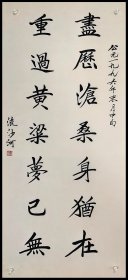 公元一九九六年冬月中旬
盡歷滄桑身猶在
重過黃粱夢已無
流沙河